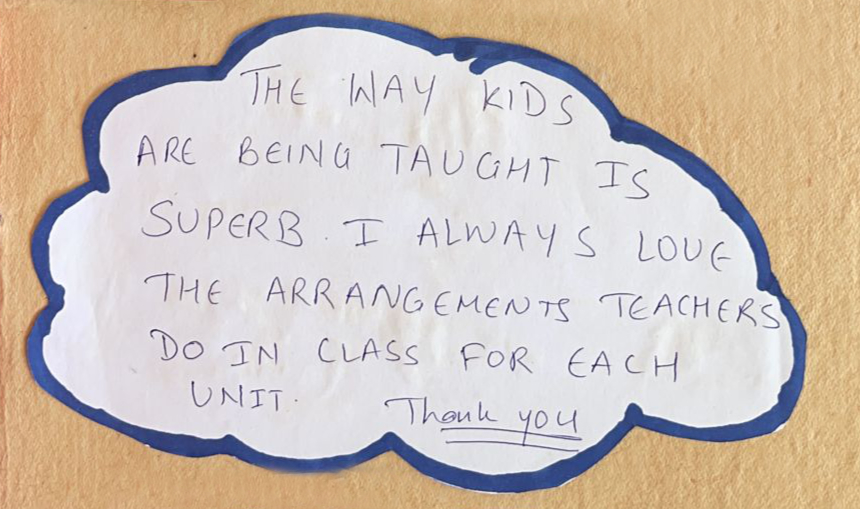 THE WAY KIDS
ARE BEING TAUGHT IS
SUPERB. I ALWAYS LOVE
THE ARRANGEMENTS TEACHERS
DO IN CLASS FOR EACH
UNIT.
Thank you